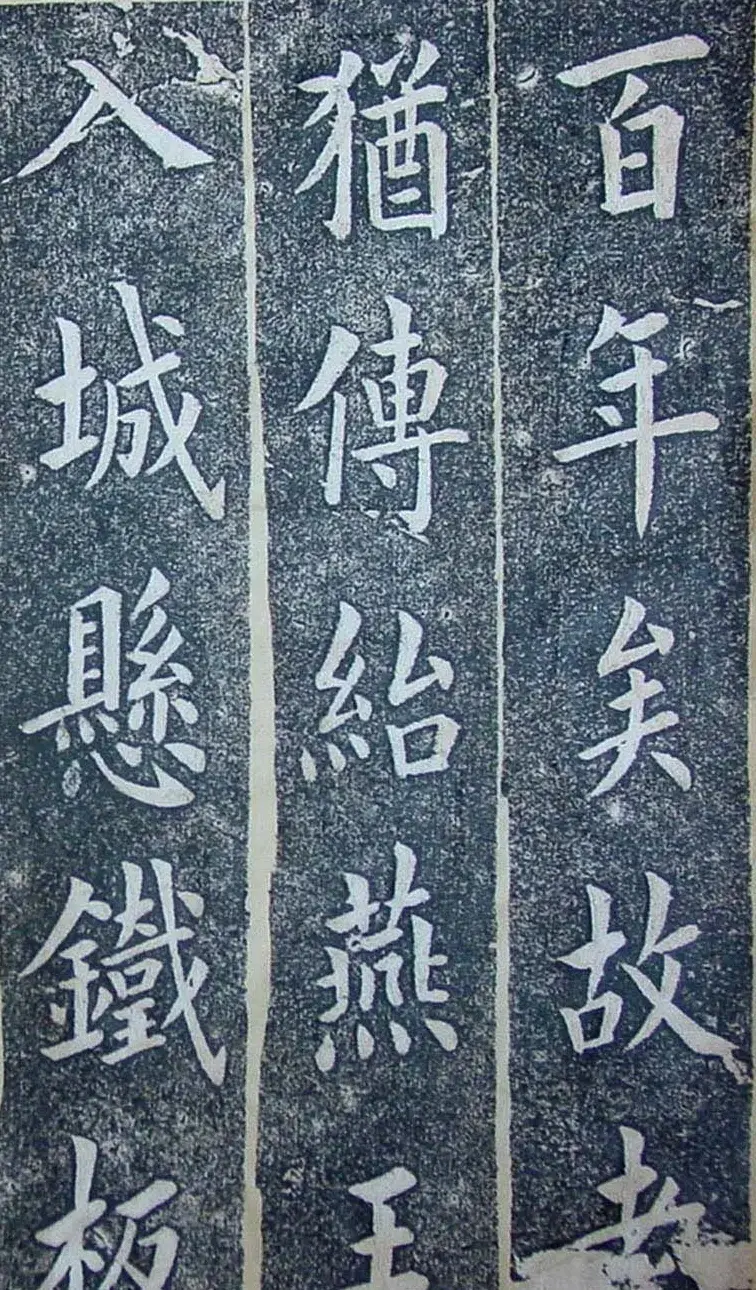 百年矣故老
猶傳紿燕王
入城懸鐵板